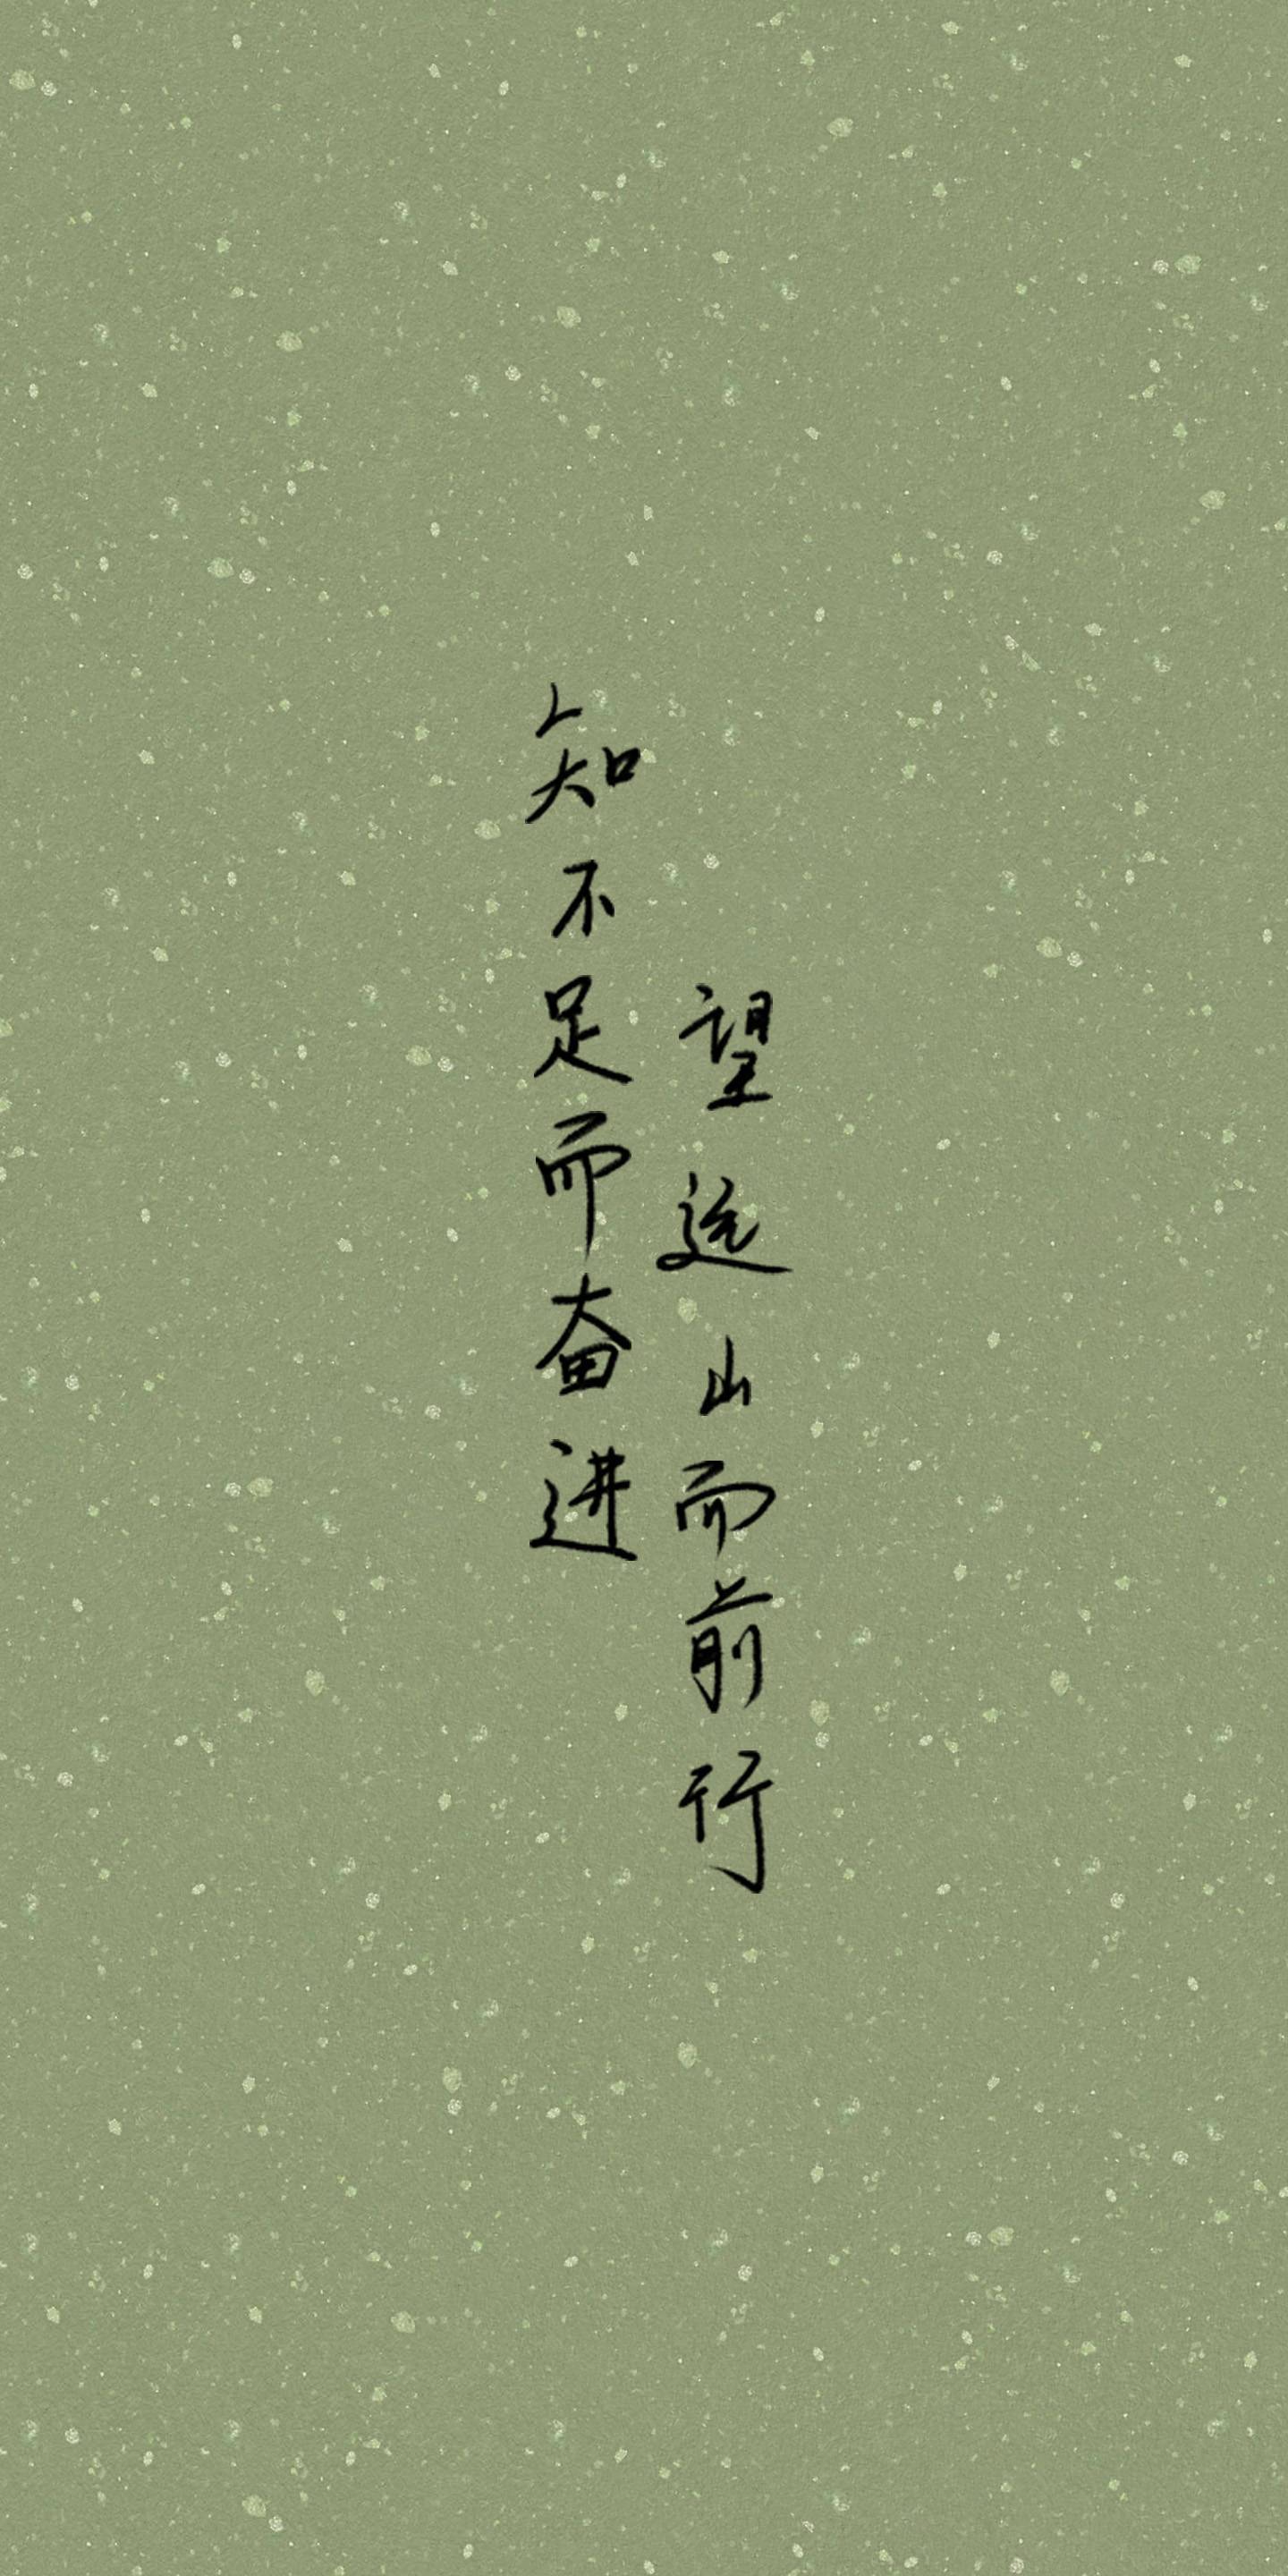 知不足而奋进
望远山而前行